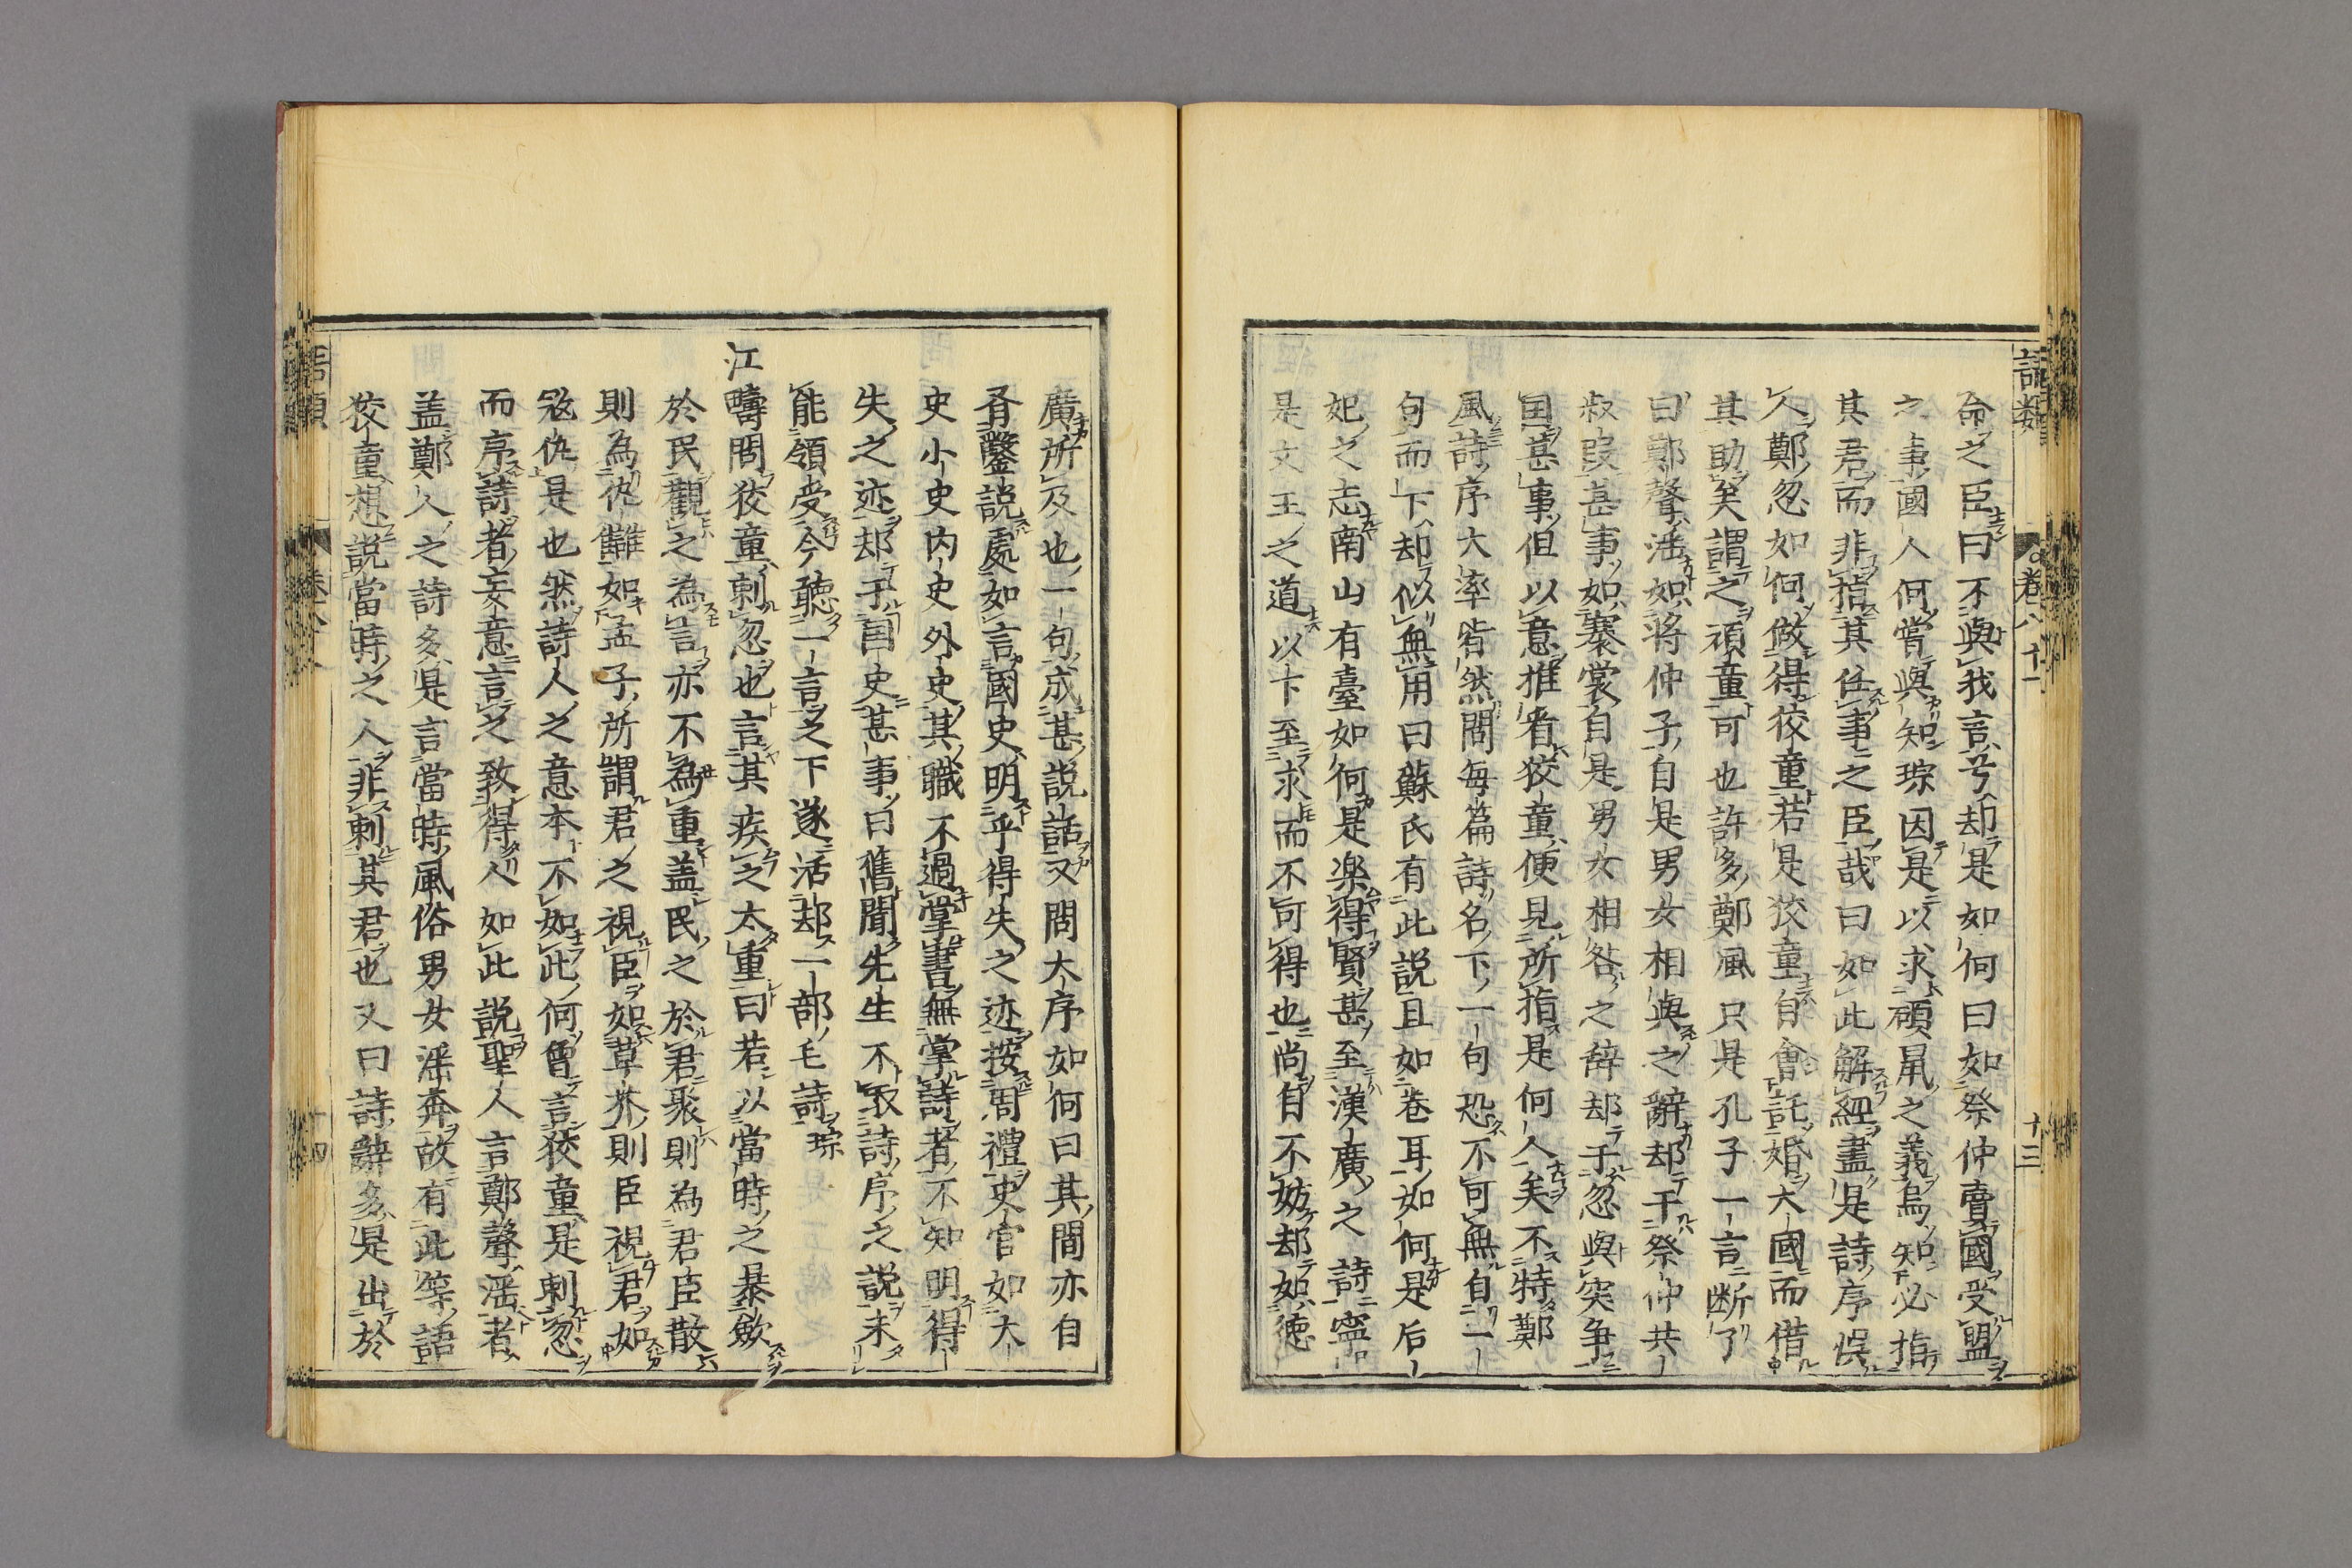 語類 卷八十一 十三
命之臣曰不與我言兮却是如何曰如祭仲賣國受盟
之事國人何嘗與知琮因是以求碩鼠之義烏知必指
其君而非指其任事之臣哉曰如此解經盡是詩序誤
人鄭忽如何做得狡童若是狡童自會託婚大國而借
其助矣謂之頑童可也許多鄭風只是孔子一言断了
曰鄭聲滛如將仲子自是男女相與之辭却干祭仲共
叔段甚事如褰裳自是男女相咎之辞却干忽與突争
国甚事但以意推看狡童便見所指是何人矣不特鄭
風詩序大率皆然問每篇詩名下一句恐不可無自一
句而下却似無用曰蘇氏有此説且如卷耳如何是后
妃之志南山有臺如何是楽得賢甚至漢廣之詩寧
是文王之道以下至求而不可得也尚自不妨却如徳
廣所及也一句成甚説話又問大序如何曰其間亦自
有鑿説處如言國史明乎得失之迹按周禮史官如大
史小史内史外史其職不過掌書無掌詩者不知明得
失之迹却干国史甚事曰舊聞先生不取詩序之説未
能領受今聽一言之下遂活却一部毛詩琮
江疇問狡童刺忽也言其疾之太重曰若以當時之暴斂
於民觀之為言亦不為重盖民之於君聚則為君臣散
則為仇讎如孟子所謂君之視臣如草芥則臣視君如
冦仇是也然詩人之意本不如此何曾言狡童是刺忽
而序詩者妄意言之致得人如此説聖人言鄭聲滛者
盖鄭人之詩多是言當時風俗男女滛奔故有此等語
狡童想説當時之人非刺其君也又曰詩辭多是出於